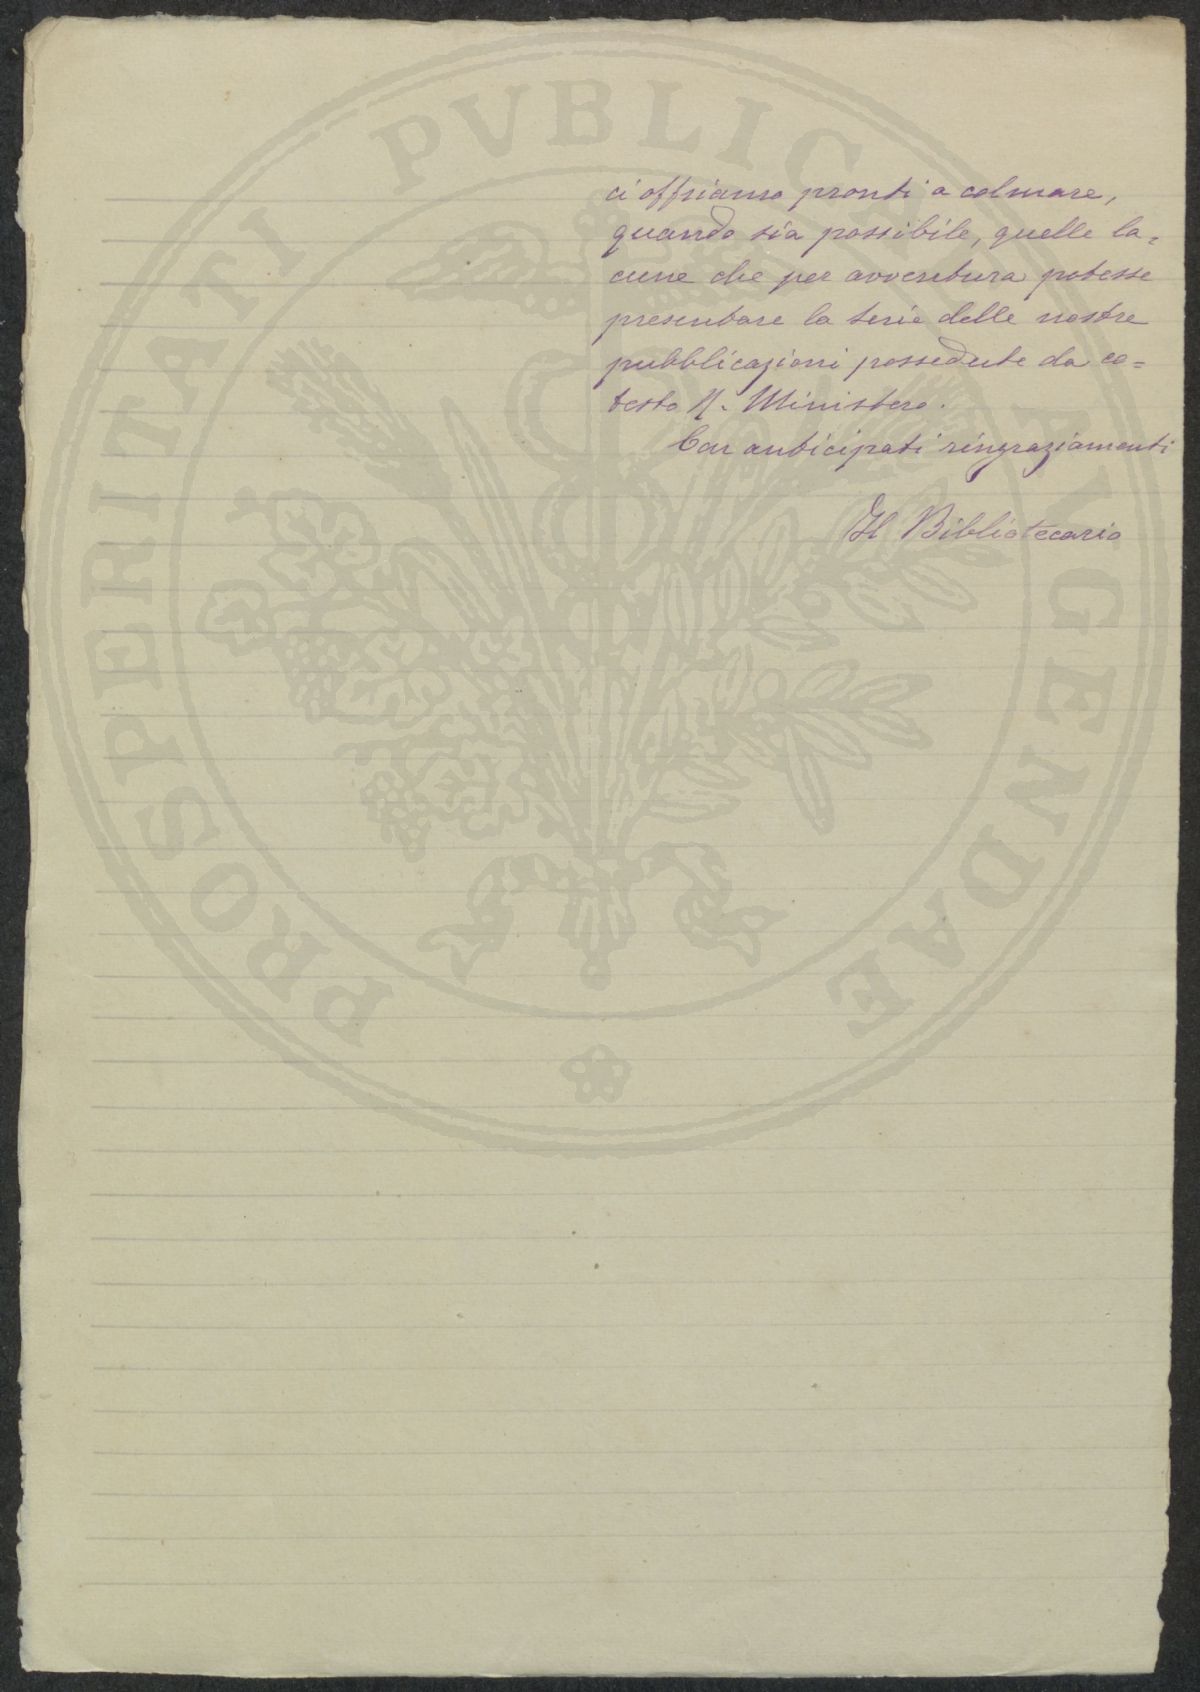 ci offriamo pronti a colmare,
quando sia possibile, quelle la=
cune che per avventura potesse
presentare la serie delle nostre
pubblicazioni possedute da co=
testo R. Ministero.
Con anticipati ringraziamenti
Il Bibliotecario
PROSPERITATI PVBLICAE AVGENDAE